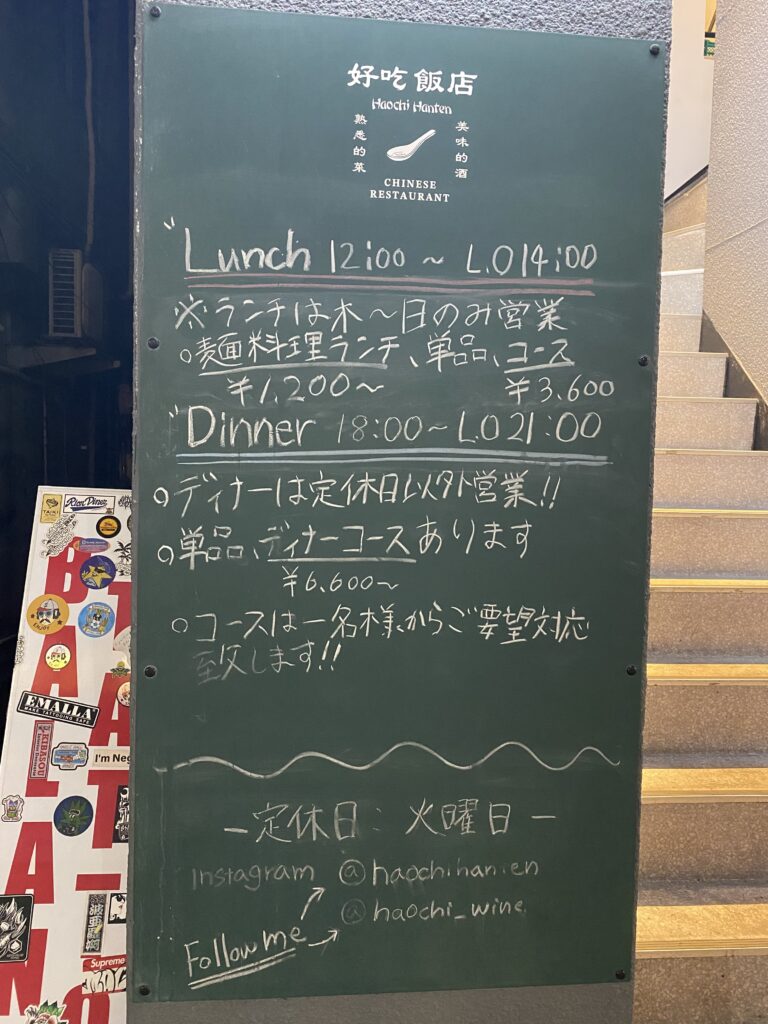 好吃飯店
Haochi Hanten
熟悉的菜
美味的酒
CHINESE
RESTAURANT
"Lunch 12:00 ~ L.O 14:00
※ランチは木～日のみ営業
○麺料理ランチ、単品、コース
¥1,200～ ¥3,600
"Dinner 18:00～L.O 21:00
○ディナーは定休日以外営業!!
○単品、ディナーコースあります
¥6,600～
○コースは一名様からご要望対応
致します!!
－定休日: 火曜日－
Instagram @haochihanten
@haochi_wine
Follow me
TAIKI
ENJOY
EMALLA
KIBASOU
I'm Neg